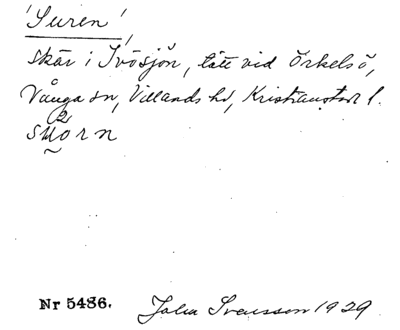 'Suren'
skär i Ivösjön, tätt vid Örkelsö,
Vånga sn, Villands hd, Kristianstad l.
Nr 5436.
John Svensson 1929